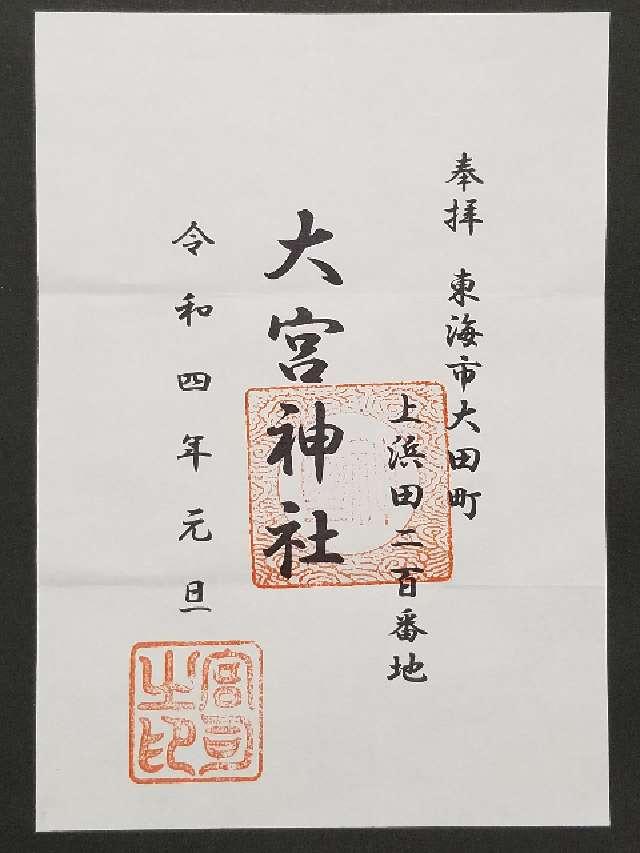 奉拝 東海市大田町
上浜田二百番地
大宮神社
令和四年元旦
宮司
之印